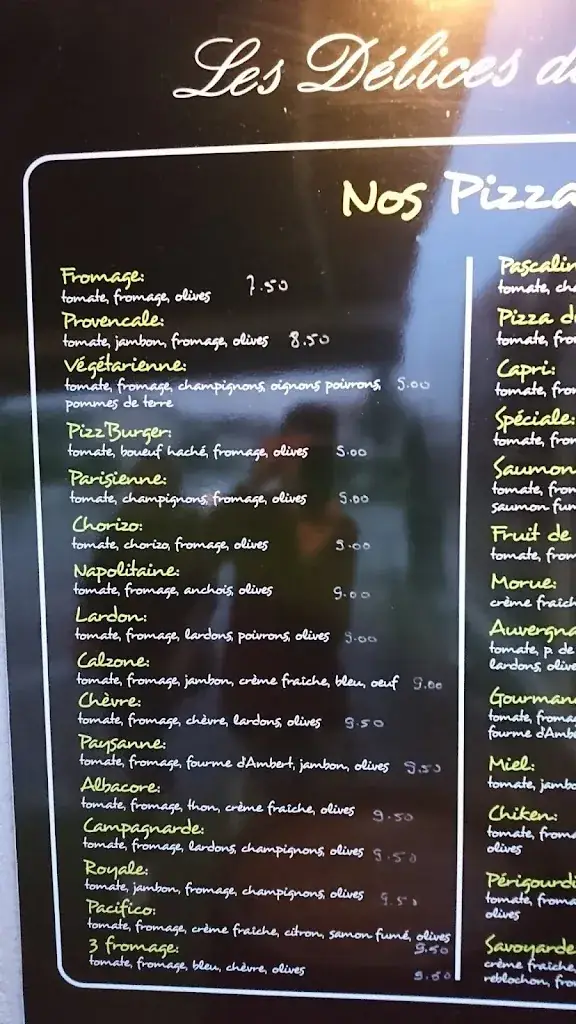 Les Délices
Nos Pizza
Fromage: 7.50
tomate, fromage, olives
Provencale:
tomate, jambon, fromage, olives 8.50
Végétarienne:
tomate, fromage, champignons, oignons poivrons, 9.00
pommes de terre
Pizz'Burger:
tomate, boueuf haché, fromage, olives 9.00
Parisienne:
tomate, champignons, fromage, olives 9.00
Chorizo:
tomate, chorizo, fromage, olives 9.00
Napolitaine:
tomate, fromage, anchois, olives 9.00
Lardon:
tomate, fromage, lardons, poivrons, olives 9.00
Calzone:
tomate, fromage, jambon, crème fraîche, bleu, oeuf 9.00
Chèvre:
tomate, fromage, chèvre, lardons, olives 9.50
Paysanne:
tomate, fromage, fourme d'Ambert, jambon, olives 9.50
Albacore:
tomate, fromage, thon, crème fraîche, olives 9.50
Campagnarde:
tomate, fromage, lardons, champignons, olives 9.50
Royale:
tomate, jambon, fromage, champignons, olives 9.50
Pacifico:
tomate, fromage, crème fraîche, citron, samon fumé, olives
3 fromage: 9.50
tomate, fromage, bleu, chèvre, olives 9.50
Pascalin
tomate,
Pizza
tomate,
Capri:
tomate,
Spéciale:
tomate,
Saumon
tomate,
saumon
Fruit de
tomate,
Morue:
crème
Auvergna
tomate, p. de
lardons,
Gourman
tomate,
fourme
Miel:
tomate,
Chiken:
tomate,
olives
Périgourdi
tomate,
olives
Savoyarde
crème fraîche,
reblochon,